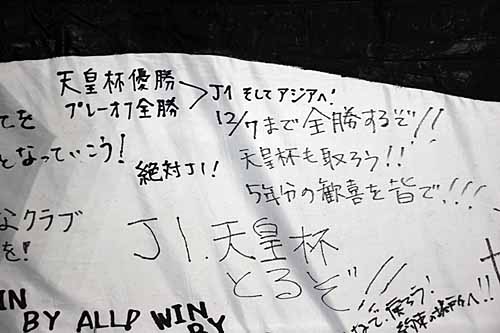 天皇杯優勝
プレーオフ全勝
J1 そしてアジアへ!
12/7まで全勝するぞ!!
天皇杯も取ろう!!
5年分の歓喜を皆で!!!
てを
となっていこう!
絶対J1!
なクラブ
を!
J1.天皇杯
とるぞ!!
IN
BY ALL
WIN
BY
戻ろう!